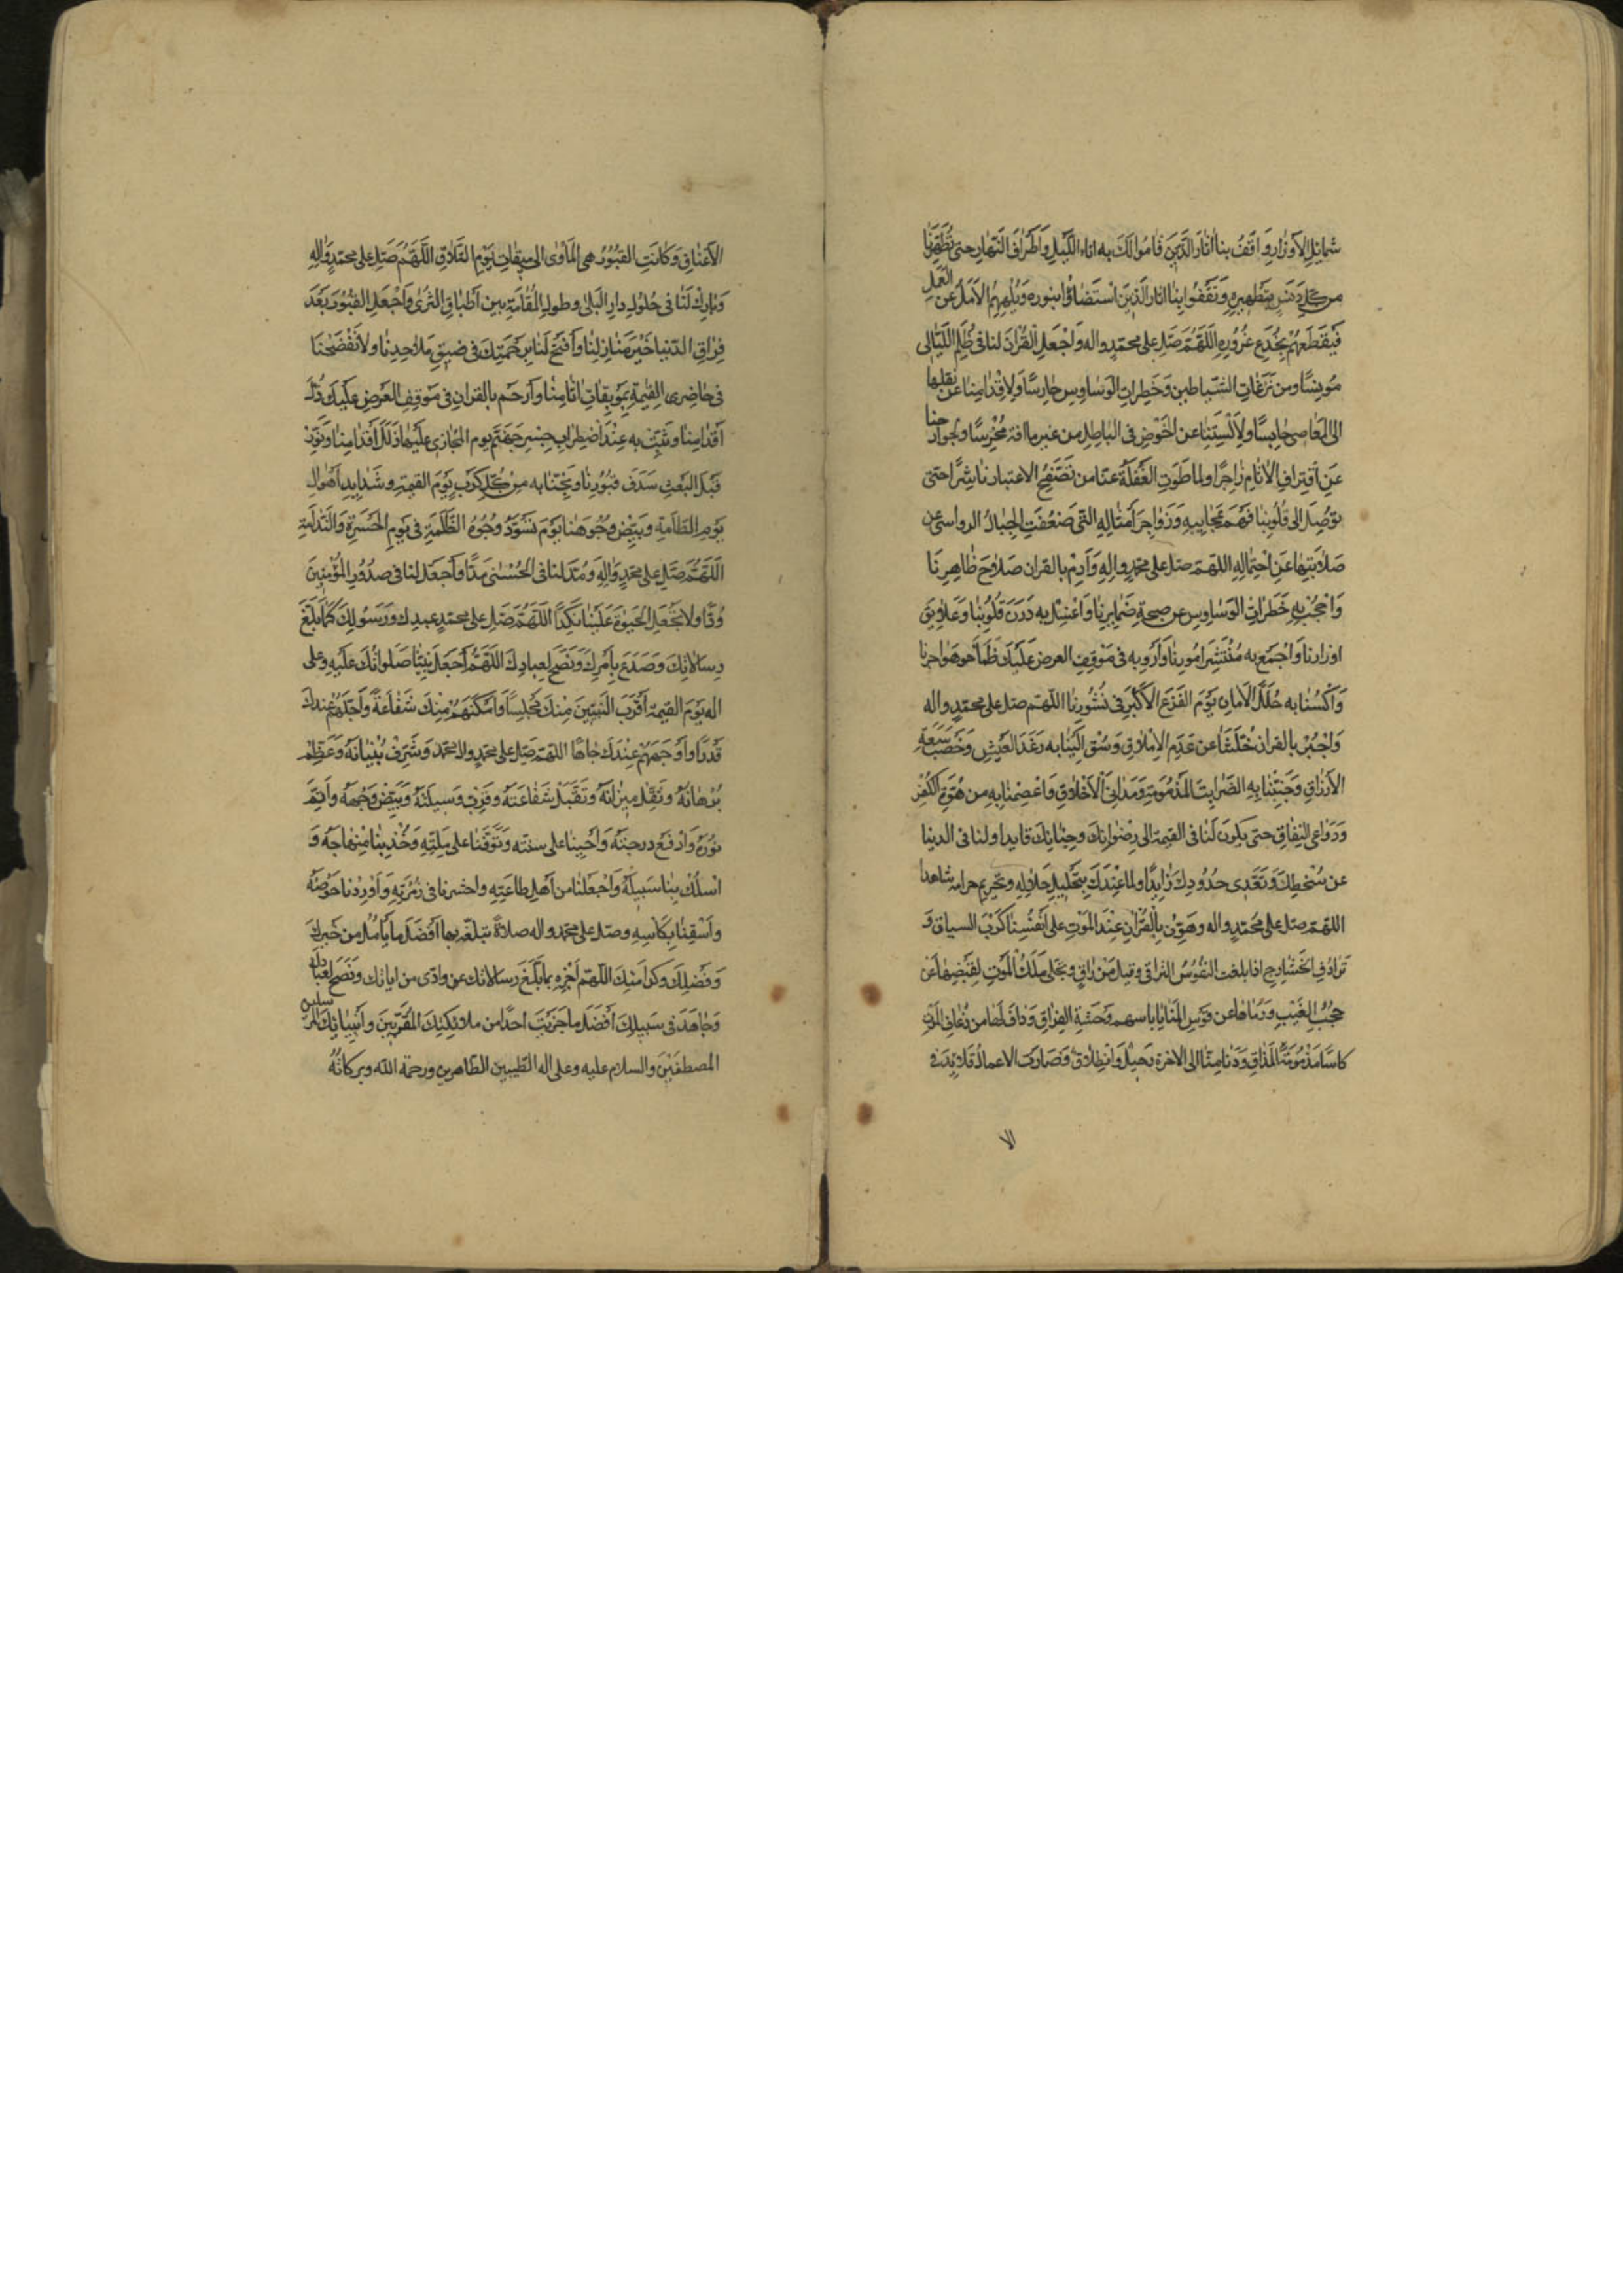 شمایل الاوزار واقف بنا اثار الذین قاموا لک به اناء اللیل واطراف النهار حتی تطهرنا
من کل دنس بتطهیره وتقفوا بنا اثار الذین استضاؤا بنوره ولم یلههم الامل عن العمل
فیقطعهم بخدع غروره اللهم صل علی محمد واله واجعل القران لنا فی ظلم اللیالی
مونسا ومن نزغات الشیاطین وخطرات الوساوس حارسا ولاقدامنا عن نقلها
الی المعاصی حابسا ولالسنتنا عن الخوض فی الباطل من غیر ما افة مخرسا ولجوارحنا
عن اقتراف الاثام زاجرا ولما طوت الغفلة عنا من تصفح الاعتبار ناشرا حتی
توصل الی قلوبنا فهم عجایبه وزواجر امثاله التی ضعفت الجبال الرواسی عن
صلابتها عن احتماله اللهم صل علی محمد واله وادم بالقران صلاح ظاهرنا
واحجب به خطرات الوساوس عن صحة ضمایرنا واغسل به درن قلوبنا وعلایق
اوزارنا واجمع به منتشر امورنا وارو به فی موقف العرض علیک ظمأ هواجرنا
واکسنا به حلل الامان یوم الفزع الاکبر فی نشورنا اللهم صل علی محمد واله
واجبر بالقران خلتنا من عدم الاملاق وسق الینا به رغد العیش وخصب سعة
الارزاق وجنبنا به الضرایب المذمومة ومدانی الاخلاق واعصمنا به من هوة الکفر
ودواعی النفاق حتی یکون لنا فی القیمة الی رضوانک وجنانک قایدا ولنا فی الدنیا
عن سخطک وتعدی حدودک ذایدا ولما عندک بتحلیل حلاله وتحریم حرامه شاهدا
اللهم صل علی محمد واله وهون بالقران عند الموت علی انفسنا کرب السیاق و
ترادف الحشارج اذا بلغت النفوس التراقی وقیل من راق وتجلی ملک الموت لقبضها من
حجب الغیب ورماها عن قوس المنایا باسهم وحشة الفراق وداف لها من ذعاف الموت
کاسا مذمومة المذاق ودنا منا الی الاخرة رحیل وانطلاق وصارت الاعمال قلاید فی
الا
الاعناق وکانت القبور هی المأوی الی میقات یوم التلاق اللهم صل علی محمد واله
وبارک لنا فی حلول دار البلی وطول المقامة بین اطباق الثری واجعل القبور بعد
فراق الدنیا خیر منازلنا وافتح لنا برحمتک فی ضیق ملاحدنا ولا تفضحنا
فی حاضری القیمة بموبقات اثامنا وارحم بالقران فی موقف العرض علیک ذل
مقامنا وثبت به عند اضطراب جسر جهنم یوم المجاز علیها زلل اقدامنا ونور
قبل البعث سدف قبورنا ونجنا به من کل کرب یوم القیمة وشداید اهوال
یوم الطامة وبیض وجوهنا یوم تسود وجوه الظلمة فی یوم الحسرة والندامة
اللهم صل علی محمد واله ومد لنا فی الحسنی مدا واجعل لنا فی صدور المؤمنین
ودا ولا تجعل الحیوة علینا نکدا اللهم صل علی محمد عبدک ورسولک کما بلغ
رسالاتک وصدع بامرک ونصح لعبادک اللهم اجعل نبینا صلواتک علیه وعلی
اله یوم القیمة اقرب النبیین منک مجلسا وامکنهم منک شفاعة واجلهم عندک
قدرا واوجههم عندک جاها اللهم صل علی محمد وال محمد وشرف بنیانه وعظم
برهانه وثقل میزانه وتقبل شفاعته وقرب وسیلته وبیض وجهه واتم
نوره وارفع درجته واحینا علی سنته وتوفنا علی ملته وخذ بنا منهاجه و
اسلک بنا سبیله واجعلنا من اهل طاعته واحشرنا فی زمرته واوردنا حوضه
واسقنا بکاسه وصل علی محمد واله صلاة تبلغه بها افضل ما یأمل من خیرک
وفضلک وکرامتک اللهم اجزه بما بلغ من رسالاتک وادی من ایاتک ونصح لعبادک
وجاهد فی سبیلک افضل ما جزیت احدا من ملائکتک المقربین وانبیائک المرسلین
المصطفین والسلام علیه وعلی اله الطیبین الطاهرین ورحمة الله وبرکاته